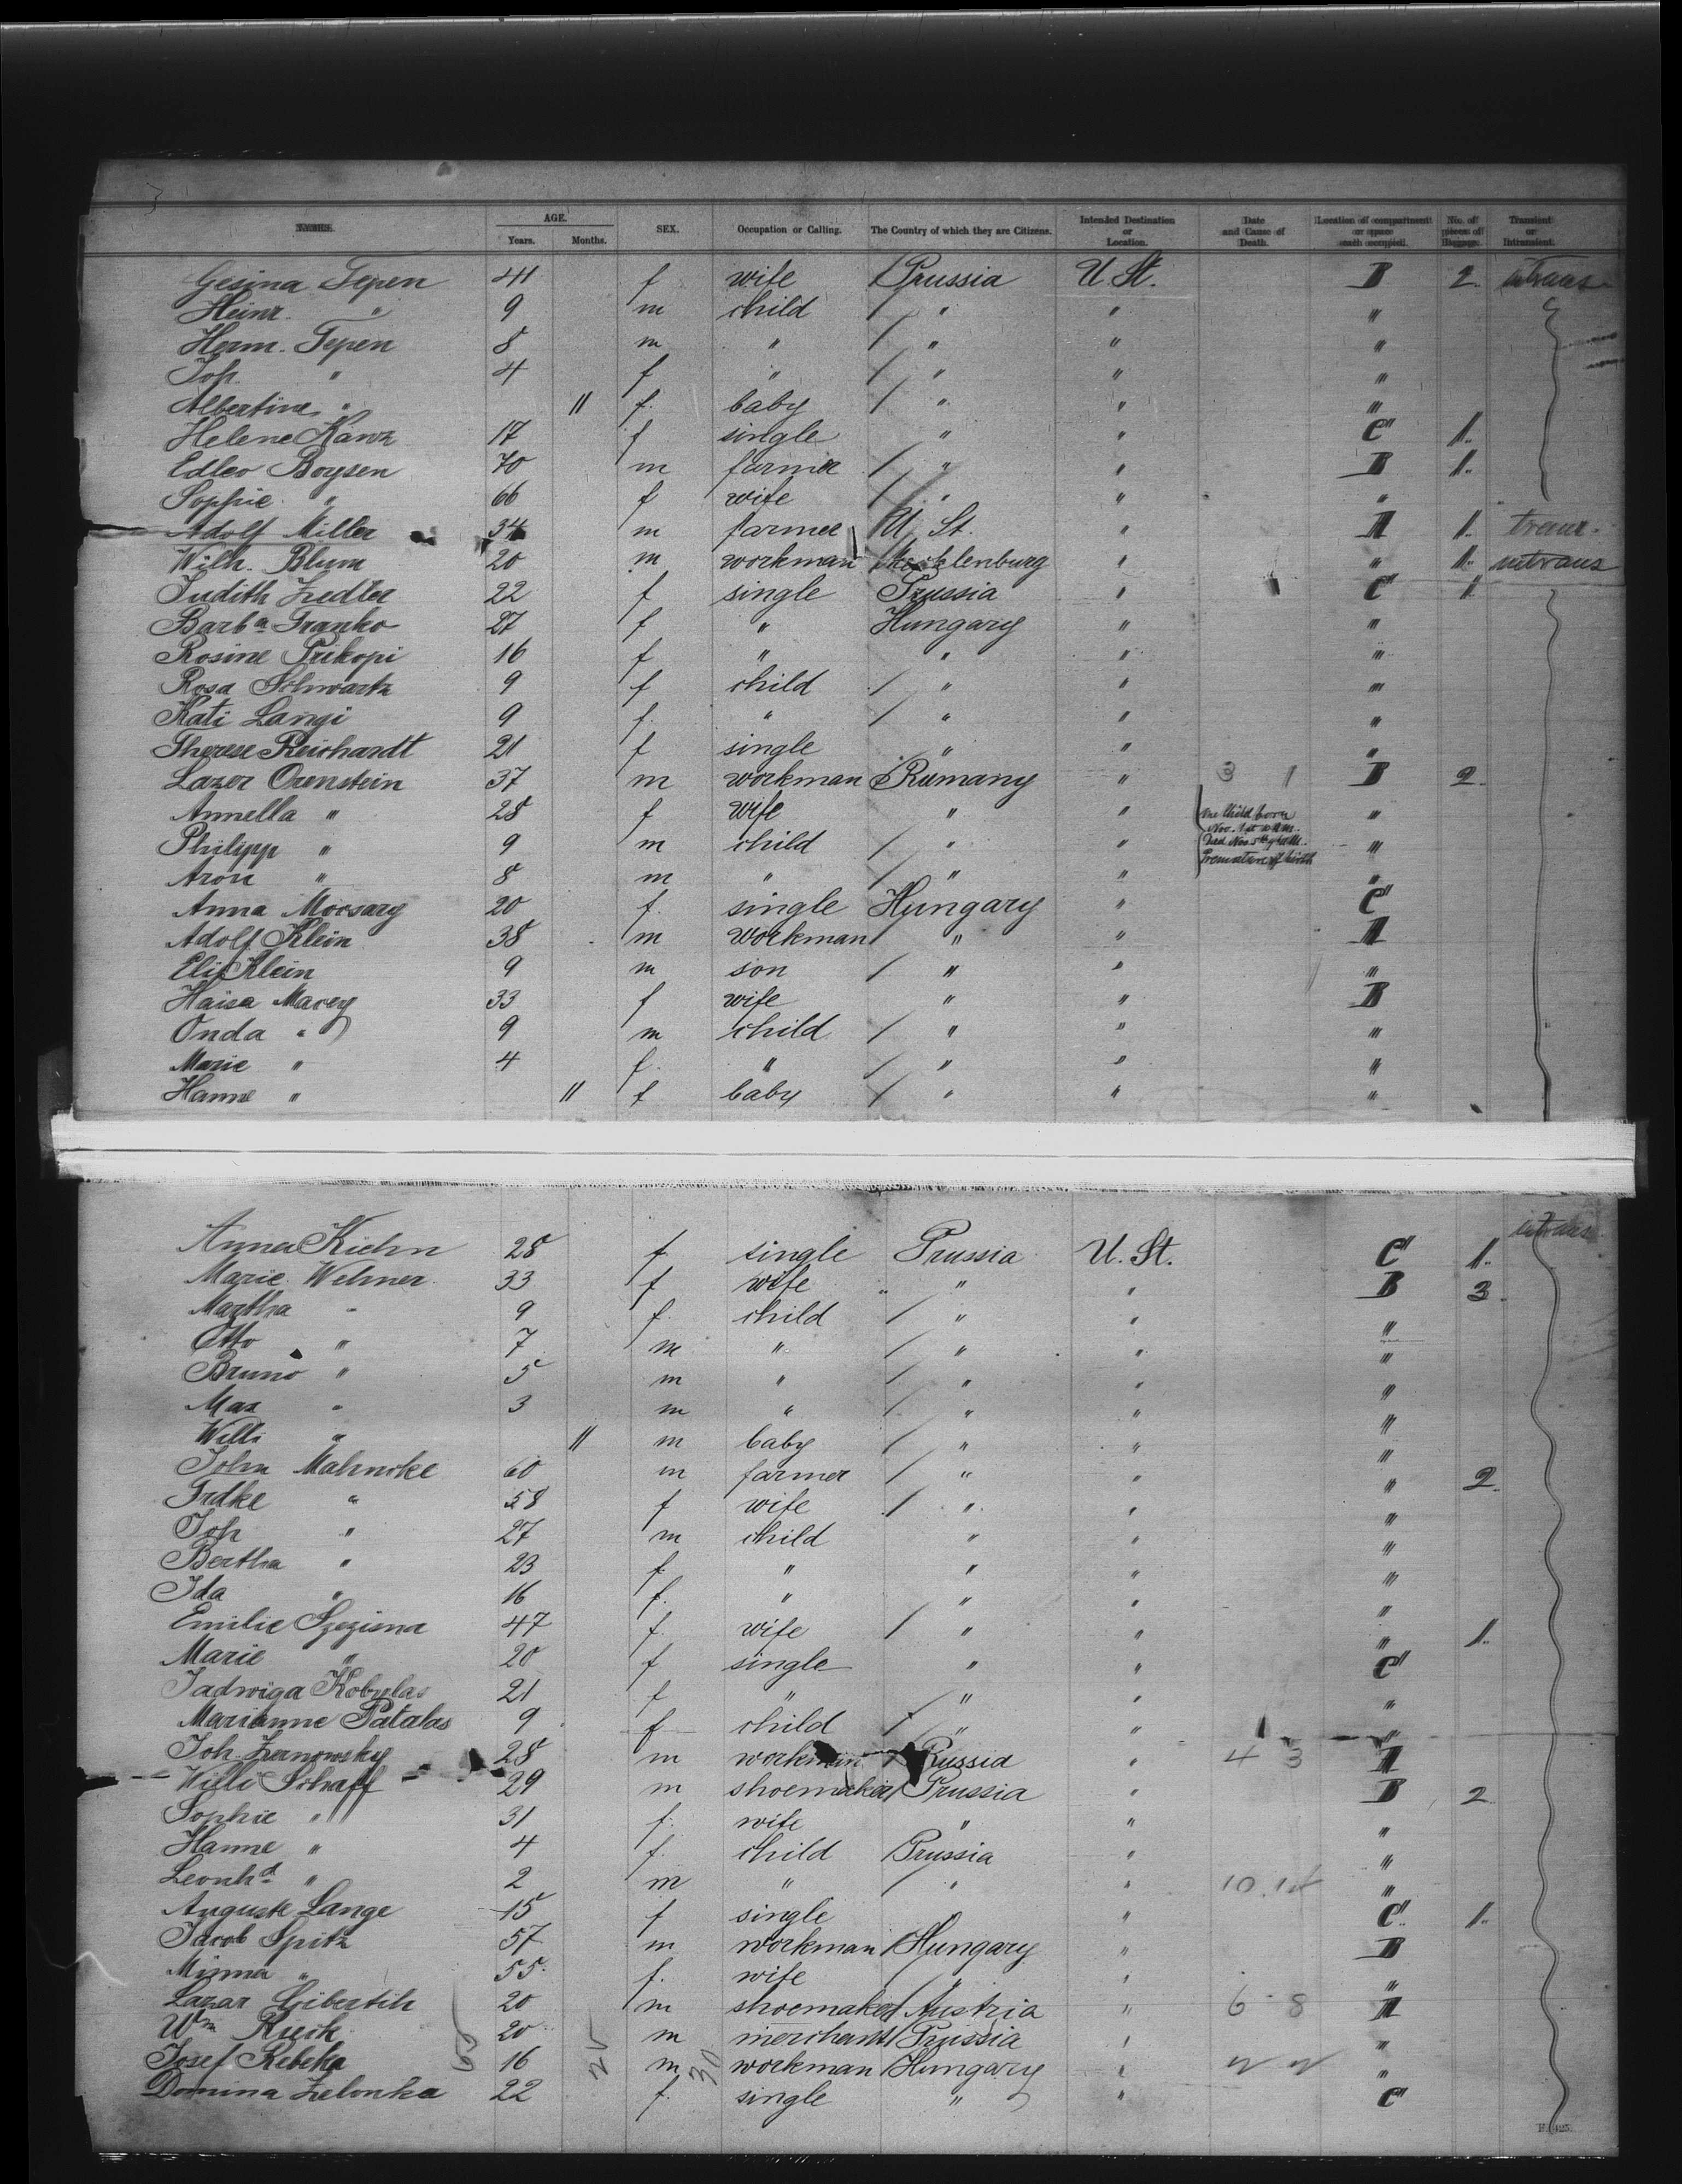 3
NAMES. AGE. Years. Months. SEX. Occupation or Calling. The Country of which they are Citizens. Intended Destination or Location. Date and Cause of Death. Location of compartment or space each occupied. No. of pieces of Baggage. Transient or Intransient.
Gesina Tepen 41 f wife Prussia U. St. B 2. intrans
Heinr. " 9 m child / " " "
Herm. Tepen 8 m " / " " "
Joh. " 4 f " / " " "
Albertine " 11 f. baby / " " "
Helene Kanz 17 f single " " C 1.
Edlev Boysen 70 m farmer / " " B 1.
Sophie " 66 f wife / " " "
Adolf Miller 34 m farmer U. St. " A 1. trans.
Wilh. Blum 20 m workman / Mecklenburg " " 1. intrans
Judith Zedler 22 f single Prussia " C 1
Barba Franko 27 f " Hungary " "
Rosine Prikopi 16 f " " " "
Rosa Schwartz 9 f child / " " "
Kati Langi 9 f. " / " " "
Therese Reichardt 21 f single " " "
Lazer Orenstein 37 m workman Rumany " 3 1 B 2
Annella " 28 f wife " " "
One Child born
Nov. 1st
Philipp " 9 m child / " " "
Died Nov. 5th
Premature birth
Aron " 8 m " / " " "
Anna Moosary 20 f. single Hungary " C
Adolf Klein 38 m workman / " " A
Eli Klein 9 m son / " " "
Haisa Marcy 33 f wife " " B
Onda " 9 m child / " " "
Marie " 4 f. " / " " "
Hanne " 11 f baby / " " "
intrans
Anna Kiehn 28 f single Prussia U. St. C 1.
Marie Wehner 33 f wife " " B 3
Martha " 9 f. child / " " "
Otto " 7 m " / " " "
Bruno " 5 m " / " " "
Max " 3 m " / " " "
Willi " 11 m baby / " " "
John Mahncke 60 m farmer / " " " 2
Frdke " 58 f wife / " " "
Joh " 27 m child " " "
Bertha " 23 f. " " " "
Ida " 16 f. " " " "
Emilie Szezisna 47 f. wife / " " " 1.
Marie " 20 f single " " C
Jadwiga Kobylas 21 f " / " " "
Marianne Patalas 9 f child / " " "
Joh. Zernowsky 28 m workman / Russia " 4 3 A
Willi Schaff 29 m shoemaker / Prussia " B 2
Sophie " 31 f. wife " " "
Hanne " 4 f. child Prussia " "
Leonhd " 2 m " / " " 10 "
Auguste Lange 15 f single " " C 1.
Jacob Spitz 57 m workman / Hungary " B
Minna " 55. f. wife / " " "
Lazar Gibertih 20 m shoemaker / Austria " 6 8 A
Wm Ruck 20 m merchant / Prussia " "
Josef Rebeka 16 m workman / Hungary " "
Domina Zelonka 22 f. single " " C